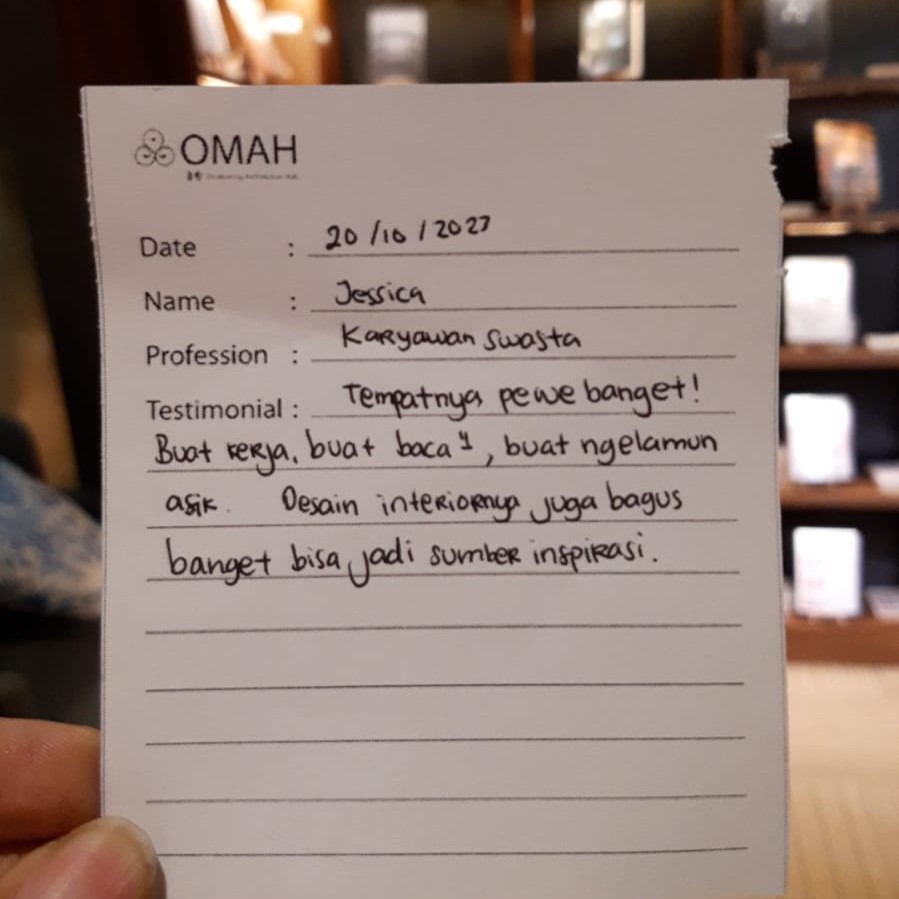 OMAH
Date : 20/10/2023
Name : Jessica
Profession : Karyawan Swasta
Testimonial : Tempatnya pewe banget!
Buat kerja, buat baca", buat ngelamun
asik. Desain interiornya juga bagus
banget bisa jadi sumber inspirasi.